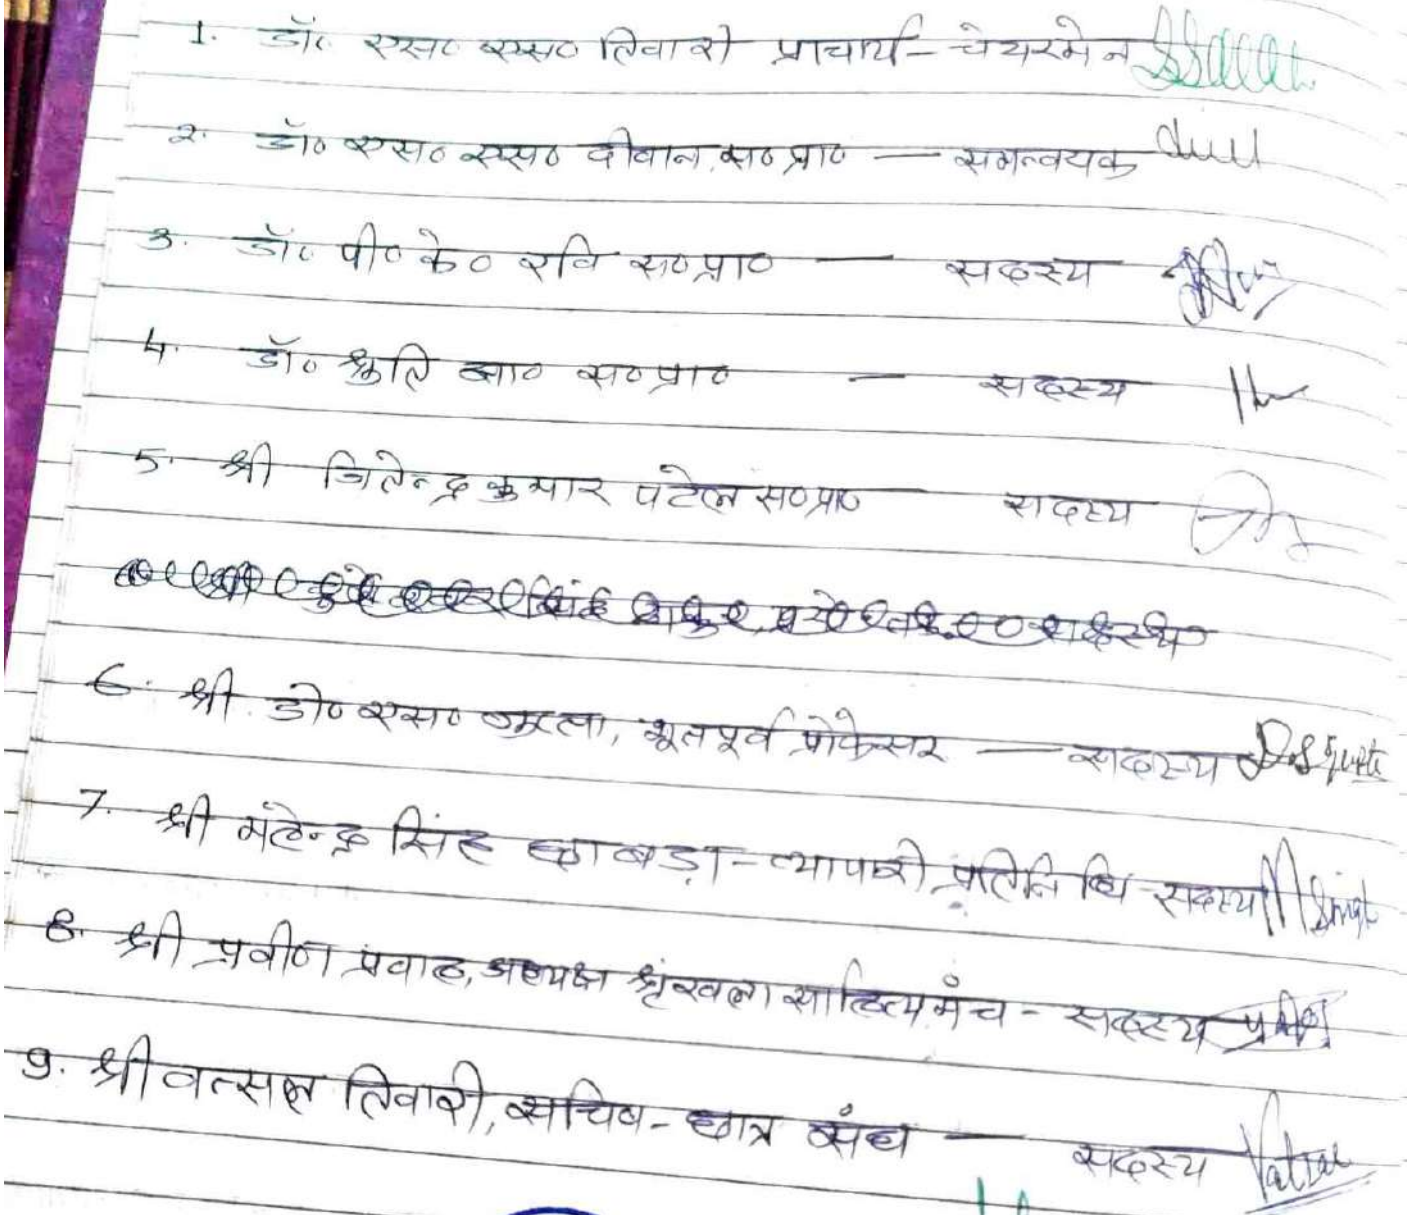 1. डॉ॰ एस॰ एस॰ तिवारी प्राचार्य - चेयरमेन
2. डॉ॰ एस॰ एस॰ दीवान, स॰ प्रा॰ — समन्वयक
3. डॉ॰ पी॰ के॰ रवि स॰ प्रा॰ — सदस्य
4. डॉ॰ श्रुति झा॰ स॰ प्रा॰ — सदस्य
5. श्री जितेन्द्र कुमार पटेल स॰ प्रा॰ सदस्य
6. श्री डी॰ एस॰ गुप्ता, भूतपूर्व प्रोफेसर — सदस्य DSGupta
7. श्री महेन्द्र सिंह छाबड़ा - व्यापारी प्रतिनिधि - सदस्य MSingh
8. श्री प्रवीण प्रवाह, अध्यक्ष श्रृंखला साहित्य मंच - सदस्य
9. श्री वत्सल तिवारी, सचिव - छात्र संघ — सदस्य Vatsal